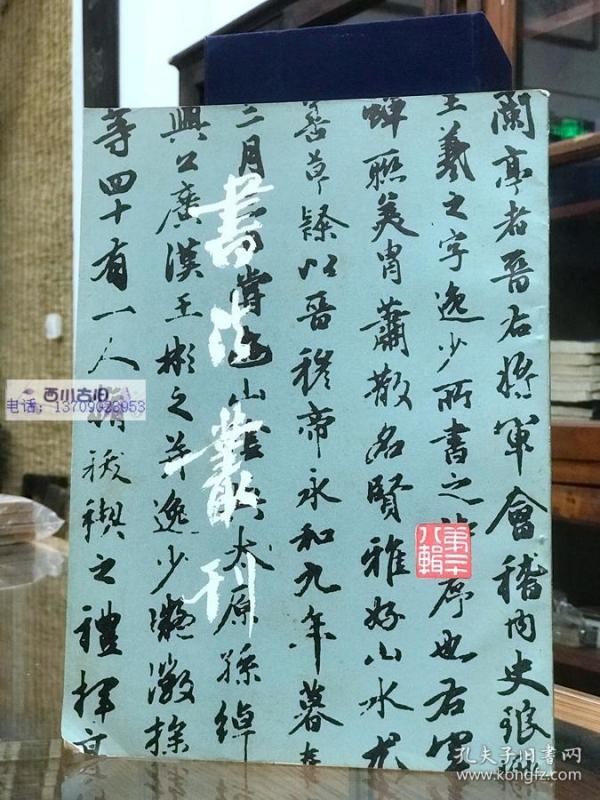 蘭亭者晉右將軍會稽內史琅
王羲之字逸少所書之詩序也右軍
蟬聯美胄蕭散名賢雅好山水尤
善草隸以晉穆帝永和九年暮春
三月嘗遊山陰與太原孫綽
興公廣漢王彬之并逸少凝徽操
等四十有一人脩祓禊之禮揮毫
書法叢刊
第二十
八輯
西川古旧
电话：13709023953
孔夫子旧書网
www.kongfz.com